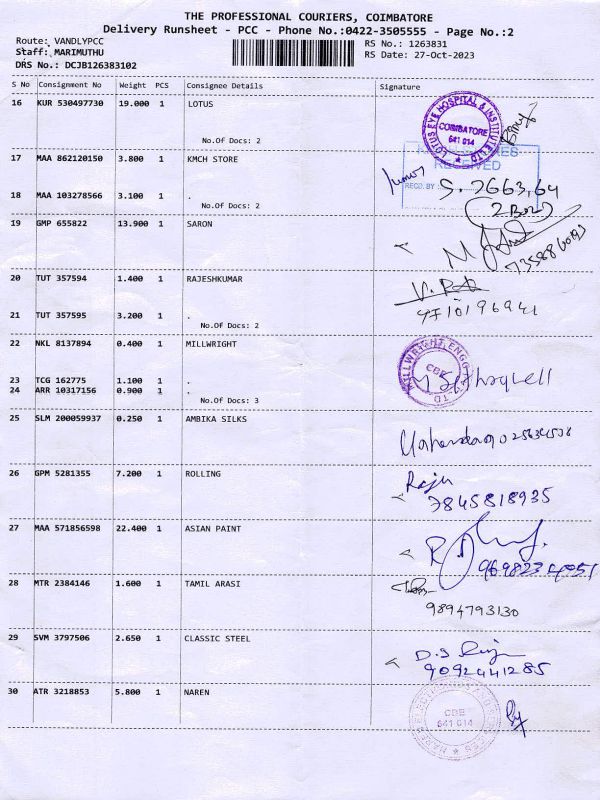 THE PROFESSIONAL COURIERS, COIMBATORE
Delivery Runsheet - PCC - Phone No.:0422-3505555 - Page No.:2
Route: VANDLYPCC
RS No.: 1263831
Staff: MARIMUTHU
RS Date: 27-Oct-2023
DRS No.: DCJB126383102
S No Consignment No Weight PCS Consignee Details Signature
16 KUR 530497730 19.000 1 LOTUS
LOTUS EYE HOSPITAL & INSTITUTE LTD
COIMBATORE
641 014
No.Of Docs: 2
17 MAA 862120150 3.800 1 KMCH STORE
RECEIVED
RECD. BY :
S. 7663,64
(2 Box)
18 MAA 103278566 3.100 1 .
No.Of Docs: 2
19 GMP 655822 13.900 1 SARON
20 TUT 357594 1.400 1 RAJESHKUMAR
21 TUT 357595 3.200 1 .
No.Of Docs: 2
22 NKL 8137894 0.400 1 MILLWRIGHT
MILLWRIGHT ENGG
CBE
23 TCG 162775 1.100 1 .
24 ARR 10317156 0.900 1 .
No.Of Docs: 3
25 SLM 200059937 0.250 1 AMBIKA SILKS
26 GPM 5281355 7.200 1 ROLLING
Raju
7845818935
27 MAA 571856598 22.400 1 ASIAN PAINT
28 MTR 2384146 1.600 1 TAMIL ARASI
9894793130
29 SVM 3797506 2.650 1 CLASSIC STEEL
9092441285
30 ATR 3218853 5.800 1 NAREN
CBE
641 014